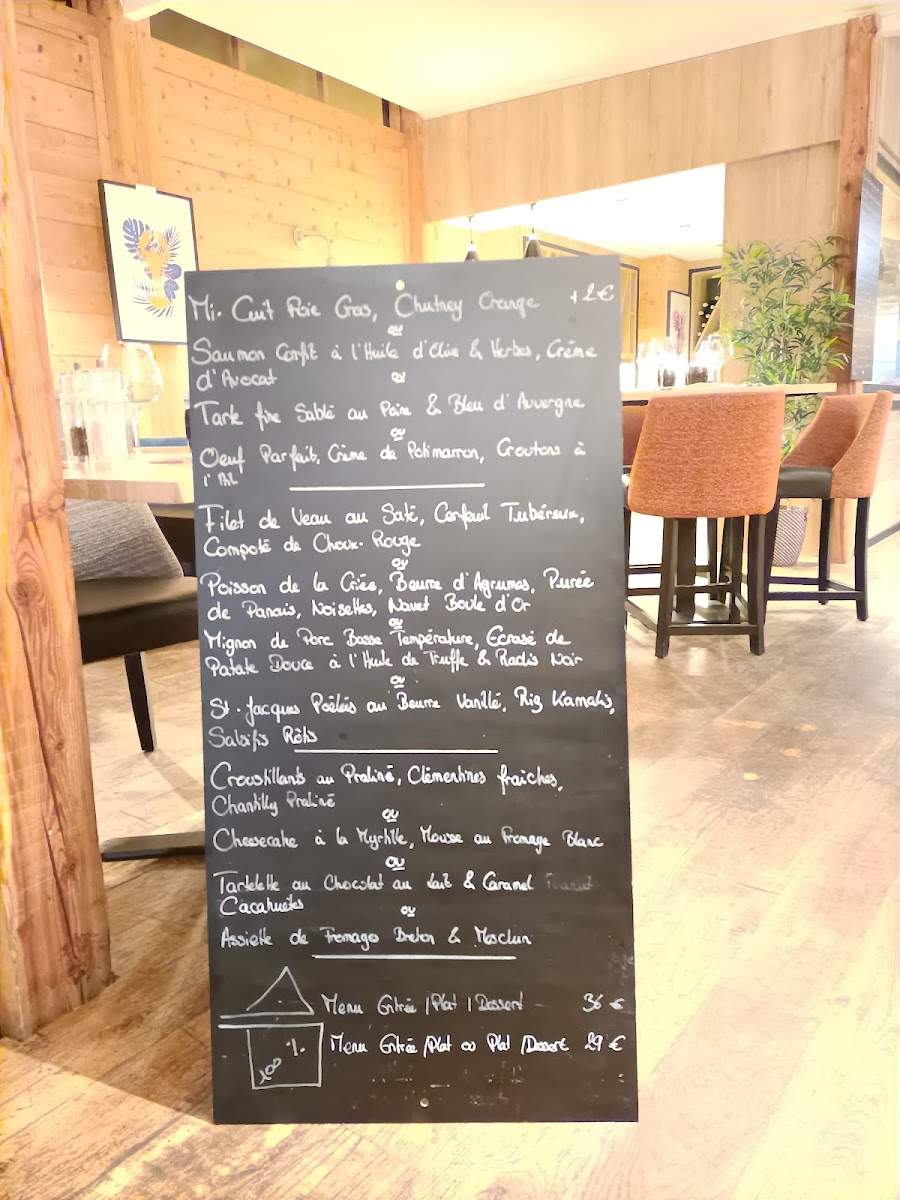 Mi-Cuit Foie Gras, Chutney Orange +2€
ou
Saumon Confit à l'Huile d'Olive & Herbes, Crème
d'Avocat
ou
Tarte fine Sablé au Poire & Bleu d'Auvergne
ou
Oeuf Parfait, Crème de Potimarron, Croutons à
l'Ail
Filet de Veau au Saté, Cerfeuil Tubéreux,
Compoté de Choux-Rouge
ou
Poisson de la Criée, Beurre d'Agrumes, Purée
de Panais, Noisettes, Navet Boule d'Or
ou
Mignon de Porc Basse Température, Ecrasé de
Patate Douce à l'Huile de Truffe & Radis Noir
ou
St-Jacques Poêlées au Beurre Vanillé, Riz Kamalis,
Salsifis Rôtis
Croustillants au Praliné, Clémentines fraîches,
Chantilly Praliné
ou
Cheesecake à la Myrtille, Mousse au Fromage Blanc
ou
Tartelette au Chocolat au Lait & Caramel
Cacahuètes
ou
Assiette de Fromages Breton & Mesclun
Menu Entrée / Plat / Dessert 36 €
100 % Menu Entrée / Plat ou Plat / Dessert 29 €